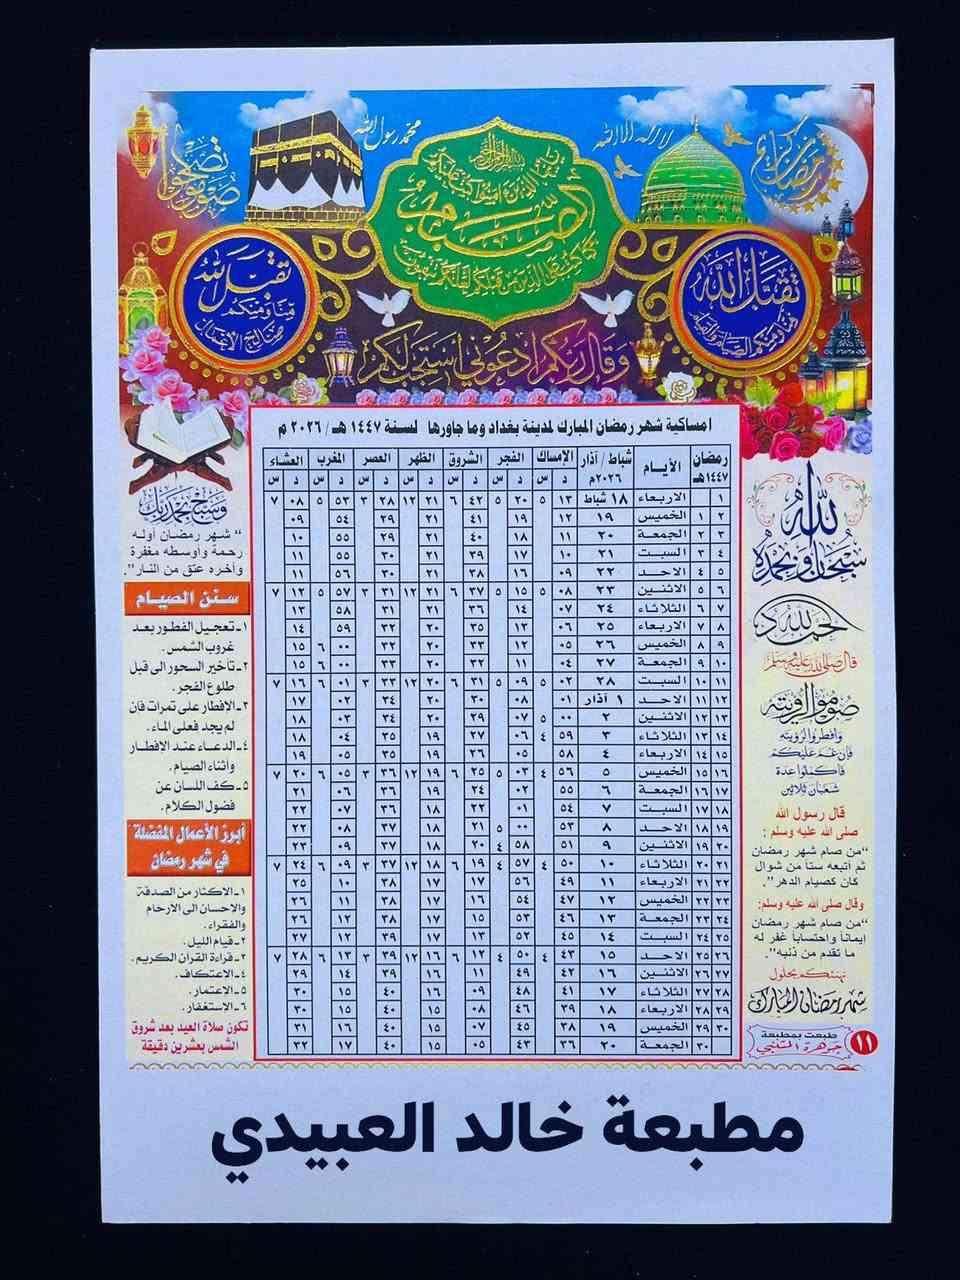 صوموا تصحوا
محمد رسول الله
لا اله الا الله
رمضان كريم
بسم الله الرحمن الرحيم
يا أيها الذين امنوا كتب عليكم
الصيام
كما كتب على الذين من قبلكم لعلكم تتقون
تقبل الله
منا ومنكم الصيام والقيام
تقبل الله
منا ومنكم
صالح الاعمال
وقال ربكم ادعوني استجب لكم
امساكية شهر رمضان المبارك لمدينة بغداد وما جاورها لسنة ١٤٤٧ هـ / ٢٠٢٦ م
رمضان ١٤٤٧هـ الأيام شباط / آذار ٢٠٢٦م الإمساك الفجر الشروق الظهر العصر المغرب العشاء
د س د س د س د س د س د س د س
١ الاربعاء ١٨ شباط ١٣ ٥ ٢٠ ٥ ٤٢ ٦ ٢١ ١٢ ٢٨ ٣ ٥٣ ٥ ٠٨ ٧
٢ ١ الخميس ١٩ ١٢ ١٩ ٤١ ٢١ ٢٩ ٥٤ ٠٩
٣ ٢ الجمعة ٢٠ ١١ ١٨ ٤٠ ٢١ ٢٩ ٥٥ ١٠
٤ ٣ السبت ٢١ ١٠ ١٧ ٣٩ ٢١ ٣٠ ٥٥ ١١
٥ ٤ الاحد ٢٢ ٠٩ ١٦ ٣٨ ٢١ ٣٠ ٥٦ ١١
٦ ٥ الاثنين ٢٣ ٠٨ ٥ ١٥ ٥ ٣٧ ٦ ٢١ ١٢ ٣١ ٣ ٥٧ ٥ ١٢ ٧
٧ ٦ الثلاثاء ٢٤ ٠٧ ١٤ ٣٦ ٢١ ٣١ ٥٨ ١٣
٨ ٧ الاربعاء ٢٥ ٠٦ ١٣ ٣٥ ٢٠ ٣٢ ٥٩ ١٤
٩ ٨ الخميس ٢٦ ٠٥ ١٢ ٣٣ ٢٠ ٣٢ ٠٠ ٦ ١٥
١٠ ٩ الجمعة ٢٧ ٠٤ ١١ ٣٢ ٢٠ ٣٣ ٠٠ ٦ ١٥
١١ ١٠ السبت ٢٨ ٠٢ ٥ ٠٩ ٥ ٣١ ٦ ٢٠ ١٢ ٣٣ ٣ ٠١ ٦ ١٦ ٧
١٢ الاحد ١ آذار ٠١ ٠٨ ٣٠ ٢٠ ٣٤ ٠٢ ١٧
١٣ ١٢ الاثنين ٢ ٠٠ ٥ ٠٧ ٢٩ ٢٠ ٣٤ ٠٣ ١٨
١٤ ١٣ الثلاثاء ٣ ٥٩ ٤ ٠٦ ٢٧ ١٩ ٣٥ ٠٤ ١٨
١٥ ١٤ الاربعاء ٤ ٥٨ ٠٥ ٢٦ ١٩ ٣٥ ٠٥ ١٩
١٦ ١٥ الخميس ٥ ٥٦ ٤ ٠٣ ٥ ٢٥ ٦ ١٩ ١٢ ٣٦ ٣ ٠٥ ٦ ٢٠ ٧
١٧ ١٦ الجمعة ٦ ٥٥ ٠٢ ٢٤ ١٩ ٣٦ ٠٦ ٢١
١٨ ١٧ السبت ٧ ٥٤ ٠١ ٢٢ ١٨ ٣٦ ٠٧ ٢٢
١٩ ١٨ الاحد ٨ ٥٣ ٠٠ ٥ ٢١ ١٨ ٣٧ ٠٨ ٢٢
٢٠ ١٩ الاثنين ٩ ٥١ ٥٨ ٤ ٢٠ ١٨ ٣٧ ٠٩ ٢٣
٢١ ٢٠ الثلاثاء ١٠ ٥٠ ٤ ٥٧ ٤ ١٩ ٦ ١٨ ١٢ ٣٧ ٣ ٠٩ ٦ ٢٤ ٧
٢٢ ٢١ الاربعاء ١١ ٤٩ ٥٦ ١٧ ١٧ ٣٨ ١٠ ٢٥
٢٣ ٢٢ الخميس ١٢ ٤٧ ٥٤ ١٦ ١٧ ٣٨ ١١ ٢٦
٢٤ ٢٣ الجمعة ١٣ ٤٦ ٥٣ ١٥ ١٧ ٣٨ ١٢ ٢٦
٢٥ ٢٤ السبت ١٤ ٤٥ ٥٢ ١٣ ١٧ ٣٩ ١٢ ٢٧
٢٦ ٢٥ الاحد ١٥ ٤٣ ٤ ٥٠ ٤ ١٢ ٦ ١٦ ١٢ ٣٩ ٣ ١٣ ٦ ٢٨ ٧
٢٧ ٢٦ الاثنين ١٦ ٤٢ ٤٩ ١١ ١٦ ٣٩ ١٤ ٢٩
٢٨ ٢٧ الثلاثاء ١٧ ٤١ ٤٨ ٠٩ ١٦ ٤٠ ١٥ ٣٠
٢٩ ٢٨ الاربعاء ١٨ ٣٩ ٤٦ ٠٨ ١٥ ٤٠ ١٥ ٣٠
٣٠ ٢٩ الخميس ١٩ ٣٨ ٤٥ ٠٧ ١٥ ٤٠ ١٦ ٣١
٣٠ الجمعة ٢٠ ٣٦ ٤٣ ٠٥ ١٥ ٤٠ ١٧ ٣٢
سبحان الله وبحمده
الحمد لله
قال صلى الله عليه وسلم
صوموا لرؤيته
وافطروا لرؤيته
فإن غم عليكم
فاكملوا عدة
شعبان ثلاثين
قال رسول الله
صلى الله عليه وسلم :
"من صام شهر رمضان
ثم أتبعه ستا من شوال
كان كصيام الدهر".
وقال صلى الله عليه وسلم:
"من صام شهر رمضان
إيماناً واحتساباً غفر له
ما تقدم من ذنبه".
نهنئكم بحلول
شهر رمضان المبارك
طبعت بمطبعة
جوهرة المتنبي
١١
وسبح بحمد ربك
"شهر رمضان أوله
رحمة وأوسطه مغفرة
وأخره عتق من النار".
سنن الصيام
١ـ تعجيل الفطور بعد
غروب الشمس.
٢ـ تأخير السحور الى قبل
طلوع الفجر.
٣ـ الافطار على تمرات فان
لم يجد فعلى الماء.
٤ـ الدعاء عند الافطار
واثناء الصيام.
٥ـ كف اللسان عن
فضول الكلام.
أبرز الأعمال المفضلة
في شهر رمضان
١ـ الاكثار من الصدقة
والاحسان الى الارحام
والفقراء.
٢ـ قيام الليل.
٣ـ قراءة القران الكريم.
٤ـ الاعتكاف.
٥ـ الاعتمار.
٦ـ الاستغفار.
تكون صلاة العيد بعد شروق
الشمس بعشرين دقيقة
مطبعة خالد العبيدي